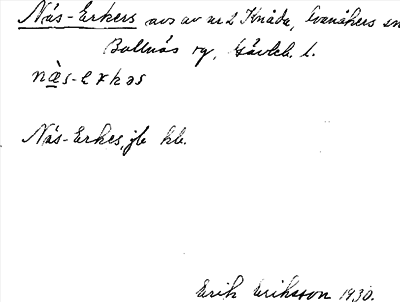 Näs-Erkers avs av nr 2 Knåda, Ovanåkers sn
Bollnäs rg, Gävleb. l.
nä̀s-ærkəs
Näs-Erkes, jb kb.
Erik Eriksson 1930.